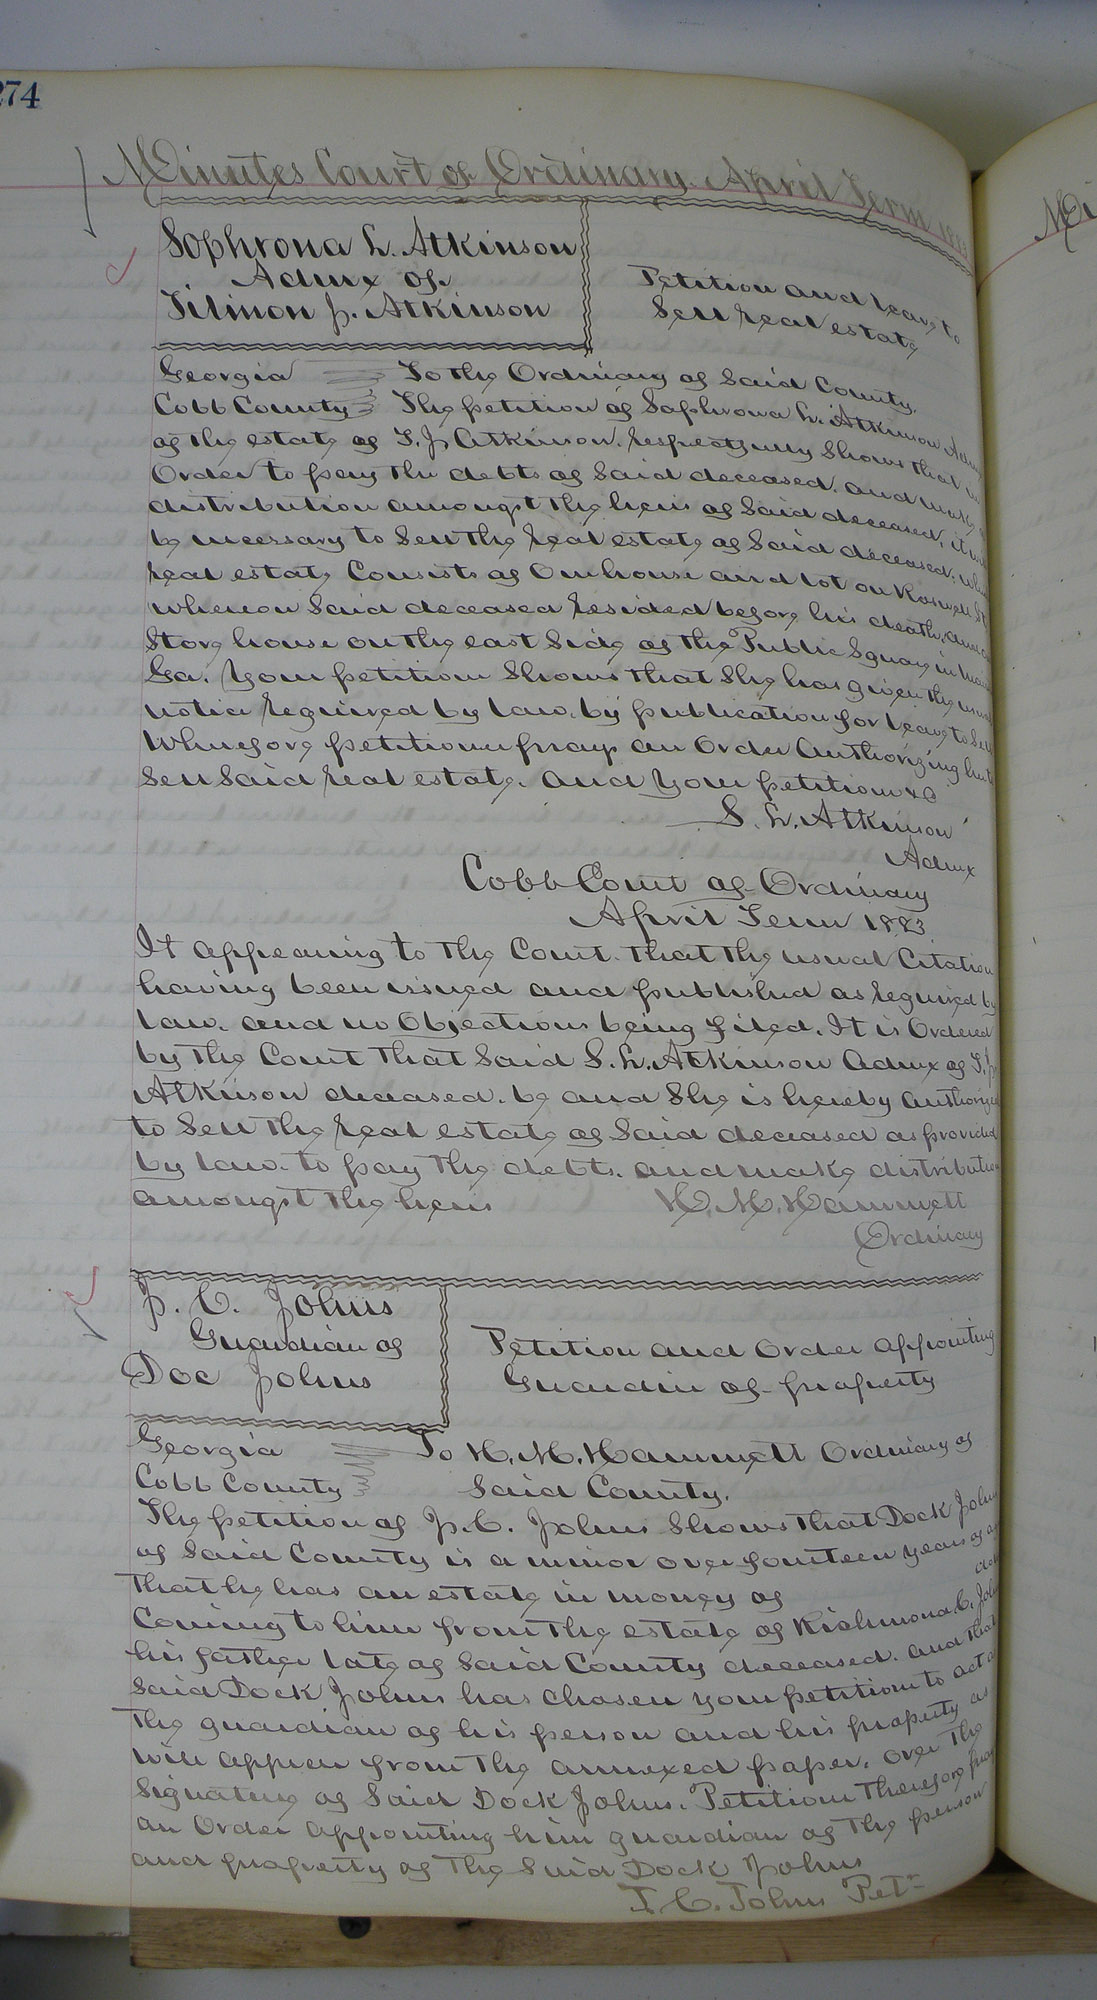 274
Minutes Court of Ordinary. April Term 1883
Sophrona L. Atkinson
Admx of
Tilmon J. Atkinson
Petition and leave to
Sell real estate
Georgia To the Ordinary of Said County.
Cobb County The petition of Sophrona L. Atkinson Admx
of the estate of T. J. Atkinson. respectfully Shows that in
Order to pay the debts of Said deceased. and make
distribution amongst the heirs of Said deceased, it will
be necessary to Sell the real estate of Said deceased; which
real estate Consists of One house and lot on Roswell St
whereon Said deceased resided before his death, and
Store house on the east Side of the Public Square in
Ga. Your petitioner Shows that She has given the usual
notice required by law. by publication for leave to Sell
Wherefore petitioner prays an Order Authorizing her to
Sell Said real estate. And Your petitioner &c
S. L. Atkinson
Admx
Cobb Court of Ordinary
April Term 1883
It appearing to the Court. that the usual Citation
having been issued and published as required by
law. and no Objections being filed. It is Ordered
by the Court that Said S. L. Atkinson Admx of T. J.
Atkinson deceased. be and She is hereby Authorized
to Sell the real estate of Said deceased as provided
by law. to pay the debts. and make distribution
amongst the heirs H. M. Hammett
Ordinary
J. C. Johns
Guardian of
Doc Johns
Petition and Order appointing
Guardin of property
Georgia To H. M. Hammett Ordinary of
Cobb County Said County.
The petition of J. C. Johns Shows that Dock Johns
of Said County is a minor over fourteen years of age
that he has an estate in money of
Coming to him from the estate of Richmond C. Johns
his father late of Said County deceased. and that
Said Dock Johns has chosen your petitioner to act as
the guardian of his person and his property as
will appear from the annexed paper. over the
Signature of Said Dock Johns. Petitioner Therefore prays
an Order appointing him guardian of the person
and property of the Said Dock Johns
J. C. Johns Petr